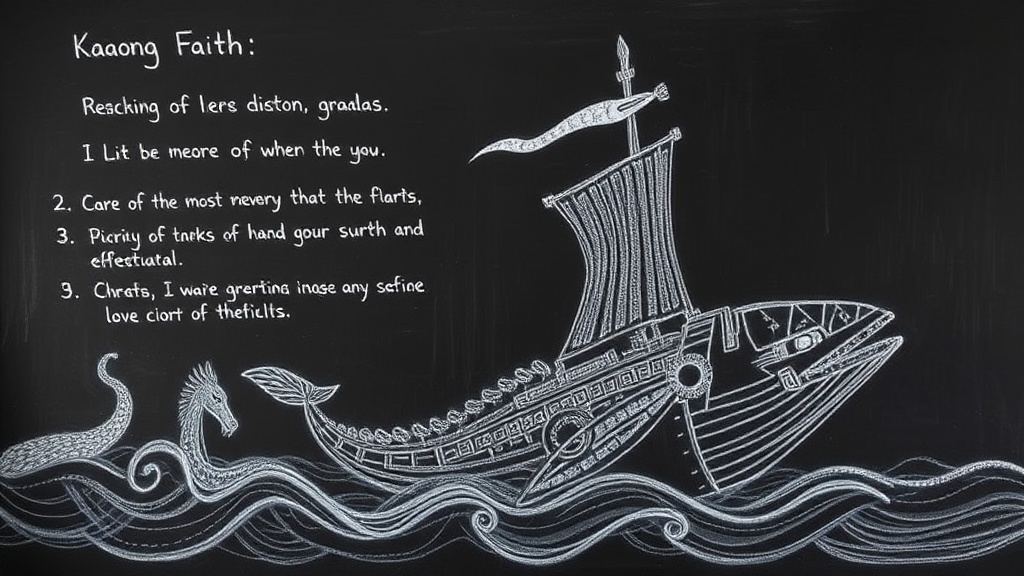 Kaaong Faith:
Rescking of lers diston, gradlas.
I Lit be meore of when the you.
2. Care of the most revery that the flarts,
3. Picrity of tnrks of hand gour surth and
effectuatal.
9. Chrats, I ware grertina inose any scfine
love ciort of theficlts.